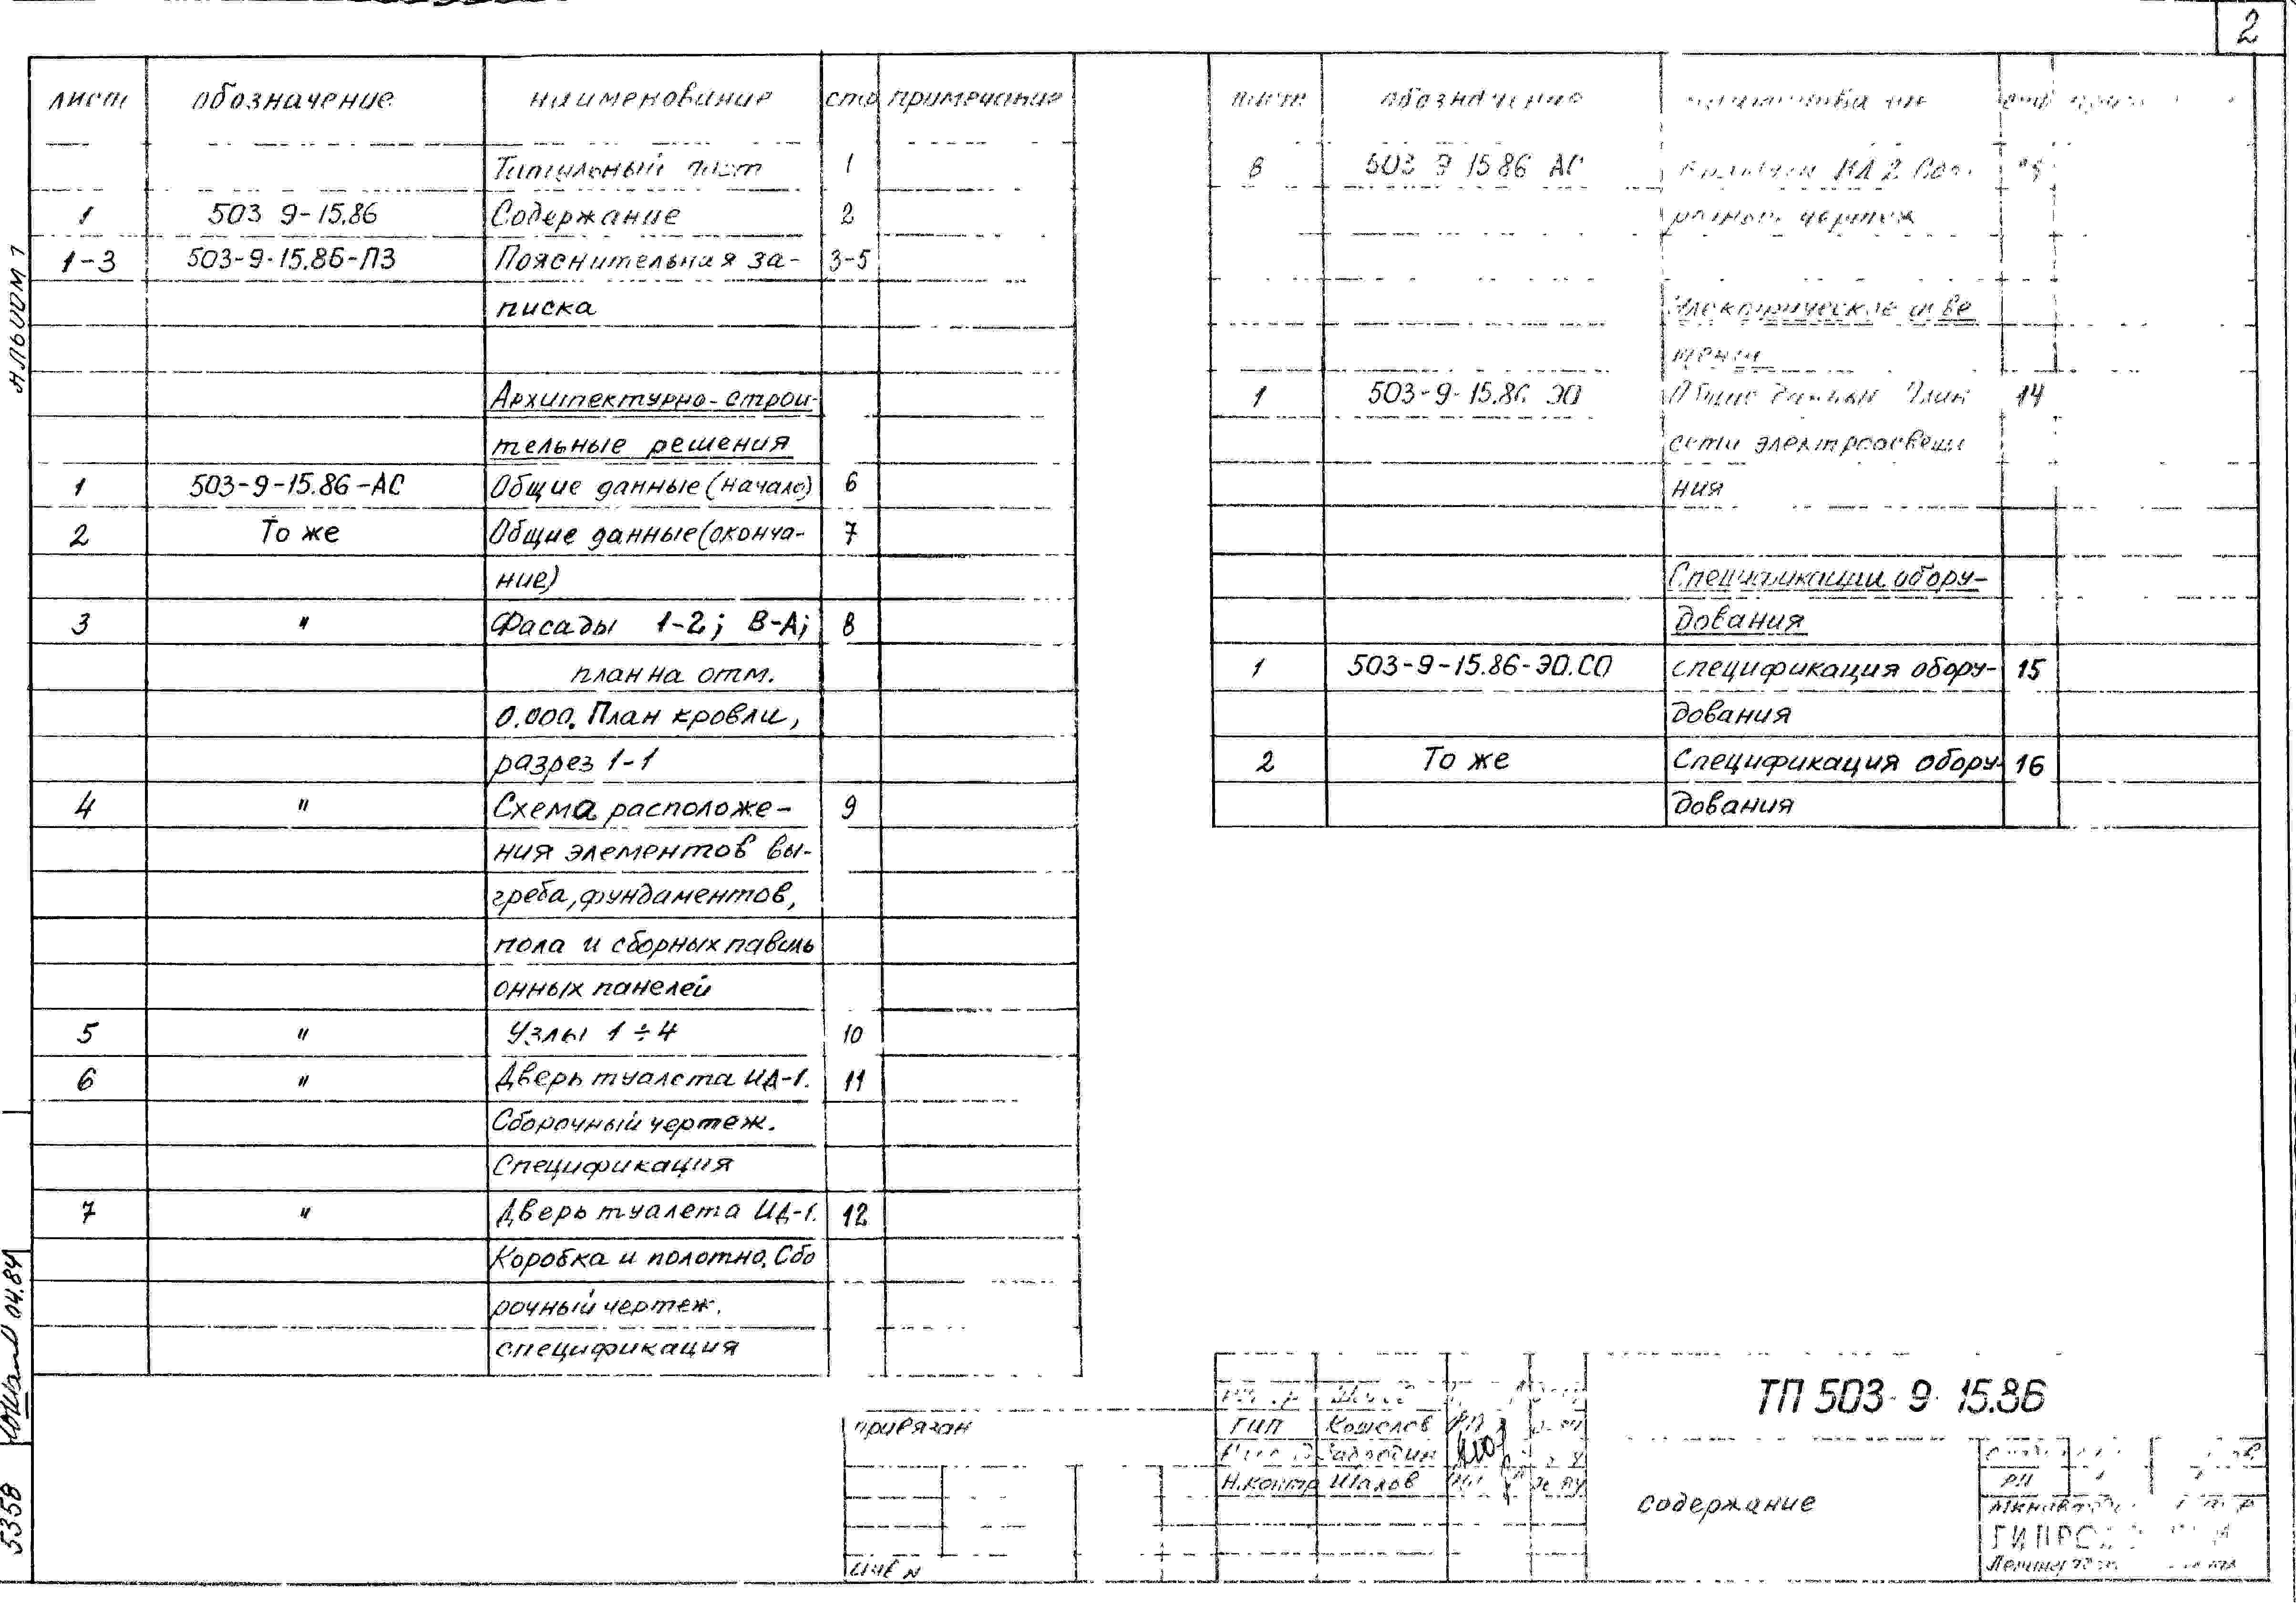 2
Альбом 1
лист обозначение наименование стр примечание
Титульный лист 1
1 503 9-15.86 Содержание 2
1-3 503-9-15.86-ПЗ Пояснительная за- 3-5
писка
Архитектурно-строи-
тельные решения
1 503-9-15.86-АС Общие данные (начало) 6
2 То же Общие данные (оконча- 7
ние)
3 " Фасады 1-2; В-А; 8
план на отм.
0.000. План кровли,
разрез 1-1
4 " Схема расположе- 9
ния элементов вы-
греба, фундаментов,
пола и сборных павиль
онных панелей
5 " Узлы 1÷4 10
6 " Дверь туалета ИД-1. 11
Сборочный чертеж.
Спецификация
7 " Дверь туалета ИД-1. 12
Коробка и полотно. Сбо
рочный чертеж.
спецификация
лист обозначение
8 503 9 15 86 АС ИД 2
чертеж
Электрическое осве
щение
1 503-9-15.86 ЭО Общие данные 14
сети электроосвеще
ния
Спецификации обору-
дования
1 503-9-15.86-ЭО.СО спецификация обору- 15
дования
2 То же Спецификация обору- 16
дования
привязан
инв N
ГИП Кошелев
Н.контр Шалов
ТП 503-9-15.86
содержание
РП
04.84
5358